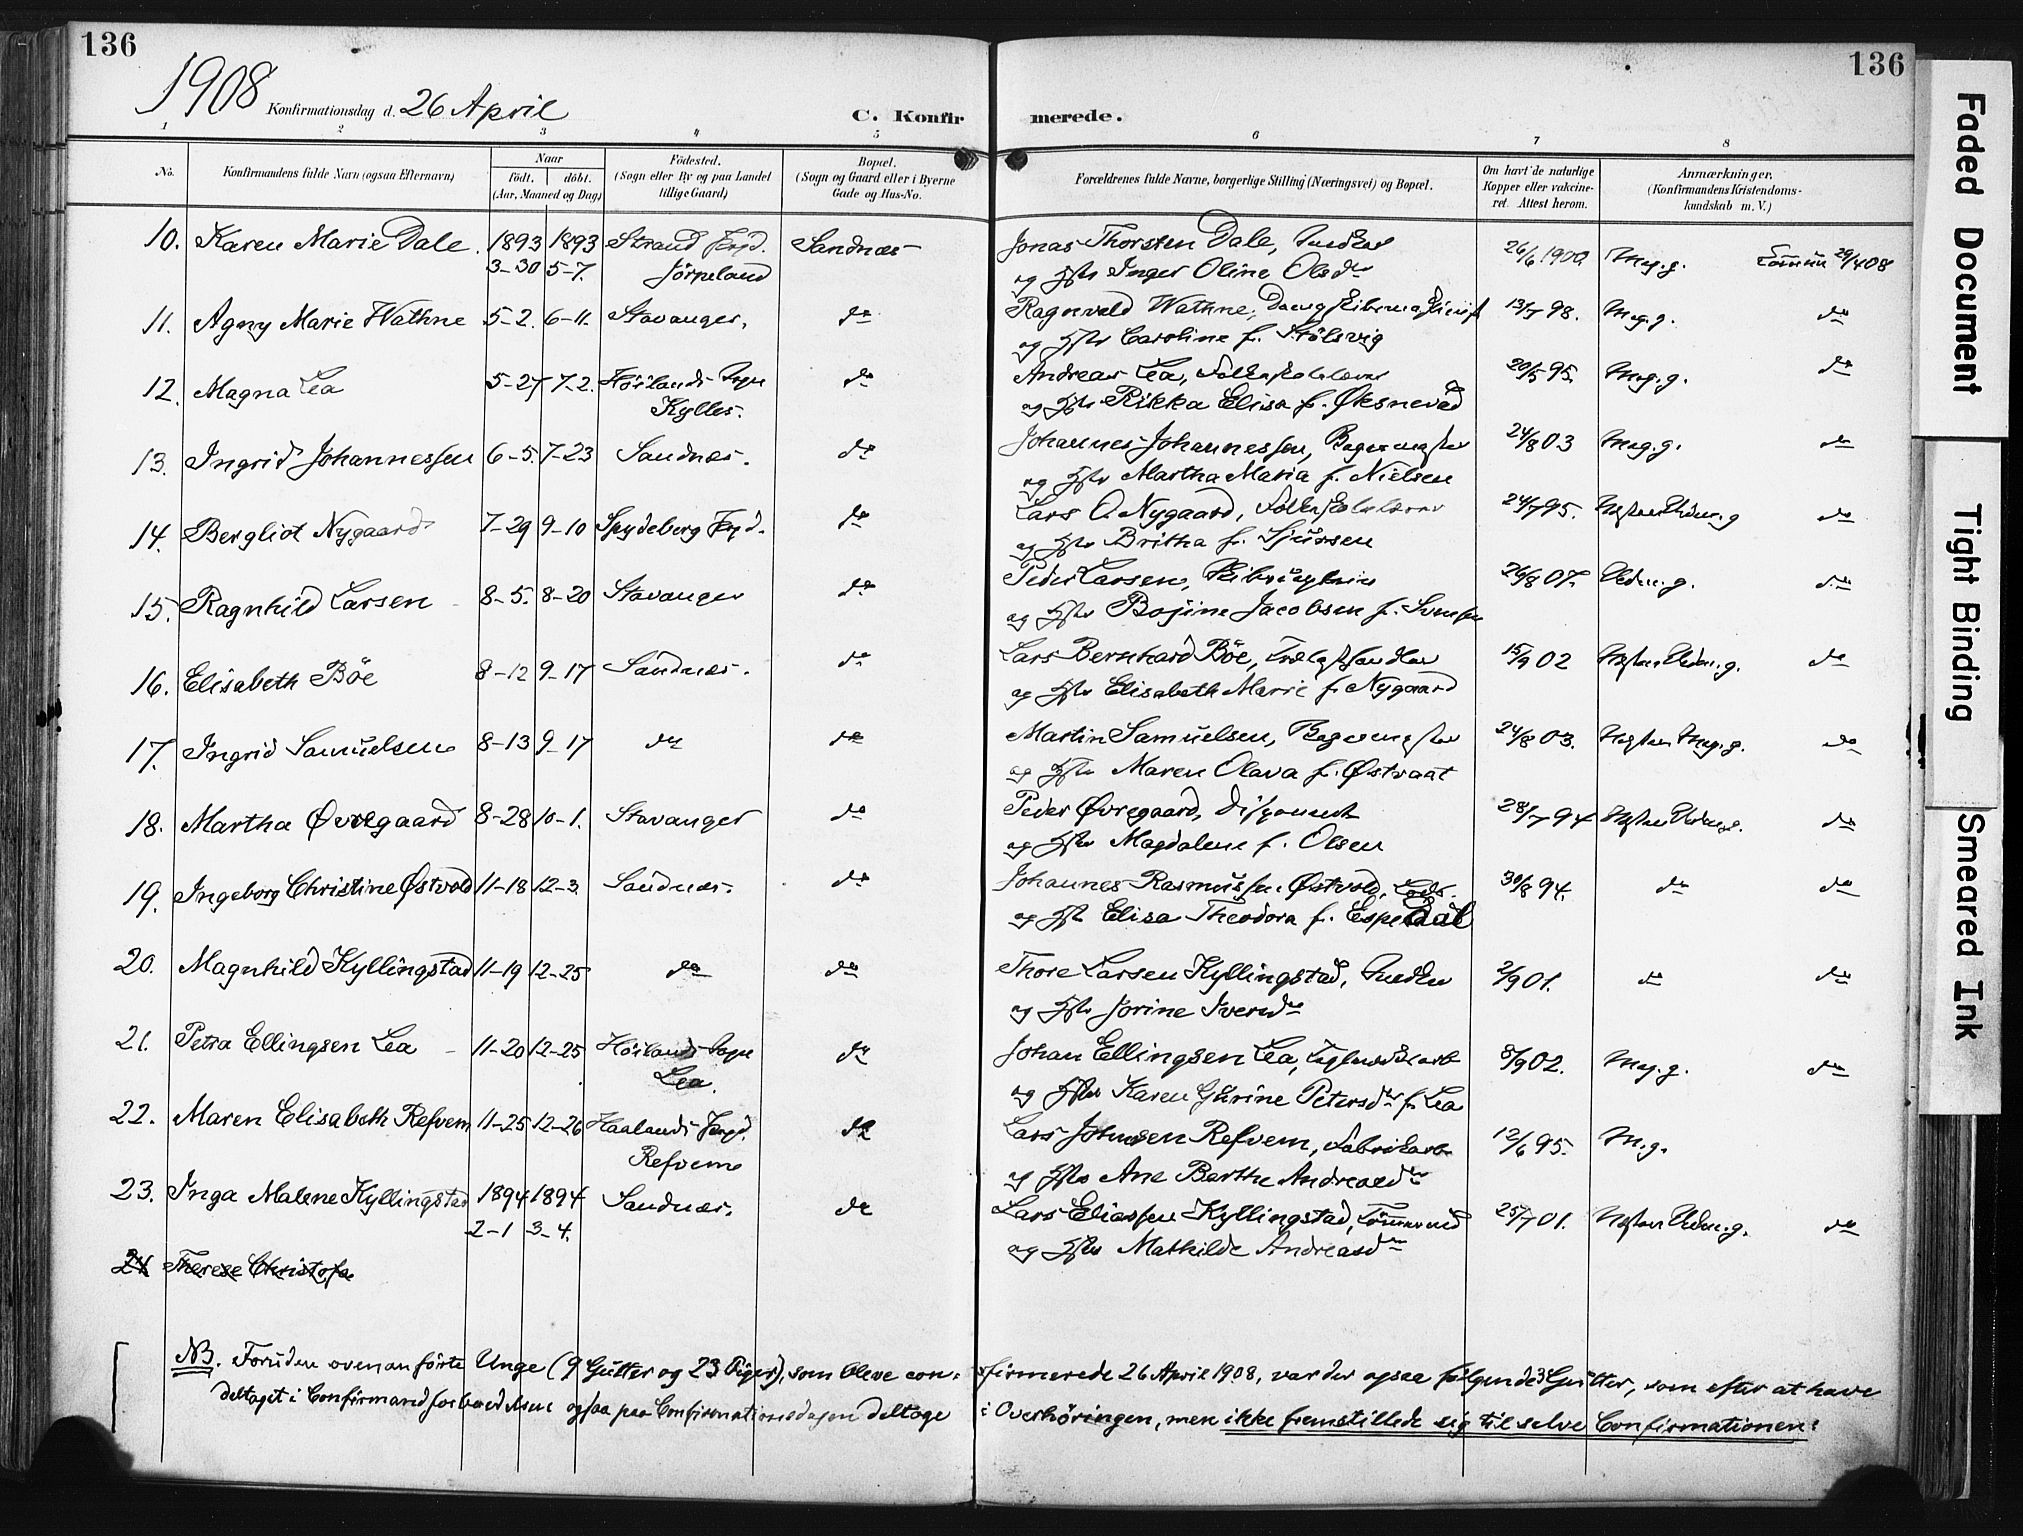 136
136
1908 Konfirmationsdag d. 26 April
C. Konfirmerede.
1 2 3 4 5 6 7 8
No.
Konfirmandens fulde Navn (ogsaa Efternavn)
Naar
født. døbt.
(Aar, Maaned og Dag)
Födested.
(Sogn eller By og paa Landet
tillige Gaard)
Bopæl.
(Sogn og Gaard eller i Byerne
Gade og Hus-No.
Forældrenes fulde Navne, borgerlige Stilling (Næringsvei) og Bopæl.
Om havt de naturlige
Kopper eller vakcine-
ret. Attest herom.
Anmærkninger.
(Konfirmandens Kristendoms-
kundskab m. V.)
10. Karen Marie Dale 1893 1893 Strand Sandnæs Jonas Thorsten Dale, 26/6 1900 Mg. g. 29/4 08
3-30 5-7. Jörpeland og Inger Oline Olsdr
11. Agny Marie Wathne 5-2. 6-11. Stavanger. do Ragnvald Wathne, 13/7 98. Mg. g. do
og Caroline f. Stölsvig
12. Magna Lea 5-27 7-2. Höilands Sogn do Andreas Lea, Folkeskolelærer 20/5 95. Mg. g. do
Kylles. og Rikka Elisa f. Øksnevad
13. Ingrid Johannessen 6-5. 7-23 Sandnæs. do Johannes Johannessen, Bagermester 24/8 03 Mg. g. do
og Martha Maria f. Nielsen
14. Bergliot Nygaard 7-29 9-10 Spydeberg do Lars O. Nygaard, Folkeskolelærer 24/7 95. do
og Britha f. Sjursen
15. Ragnhild Larsen 8-5. 8-20 Stavanger do Peder Larsen, 26/8 07. Udm. g. do
og Bojine Jacobsen f.
16. Elisabeth Böe 8-12 9-17 Sandnæs. do Lars Bernhard Böe, Trælasthandler 15/9 02 Næsten Udm. g. do
og Elisabeth Marie f. Nygaard
17. Ingrid Samuelsen 8-13 9-17 do do Martin Samuelsen, Bagermester 24/8 03. Næsten Mg. g. do
og Maren Olava f. Østraat
18. Martha Øvregaard 8-28 10-1. Stavanger do Peder Øvregaard, Disponent 28/7 94 Næsten Udm. g. do
og Magdalene f. Olsen
19. Ingeborg Christine Østvold 11-18 12-3. Sandnæs. do Johannes Rasmussen Østvold, Lods. 30/8 94. do do
og Elisa Theodora f. Espedal
20. Magnhild Kyllingstad 11-19 12-25 do do Thore Larsen Kyllingstad, 2/9 01. do do
og Jorine Iversdr
21. Petra Ellingsen Lea 11-20 12-25 Höilands Sogn do Johan Ellingsen Lea, 8/9 02. Mg. g. do
Lea. og Karen Gurine Petersdr f. Lea
22. Maren Elisabeth Refvem 11-25 12-26 Haalands do Lars Johnsen Refvem, Fabrikarb. 12/6 95. M. g.
Refvem og Ane Berthe Andreasdr
23. Inga Malene Kyllingstad 1894 1894 Sandnæs. do Lars Eliassen Kyllingstad, 25/7 01. Næsten Udm. g. do
2-1 3-4. og Mathilde Andreasdr
24 Therese Christofa
NB. Foruden ovenanførte Unge (9 Gutter og 23 Piger), som bleve con- firmerede 26 April 1908, var der ogsaa følgende 3 Gutter, som efter at have
deltaget i Confirmandforberedelsen ogsaa paa Confirmationsdagen deltoge i Overhöringen, men ikke fremstillede sig til selve Confirmationen:
Faded Document
Tight Binding
Smeared Ink